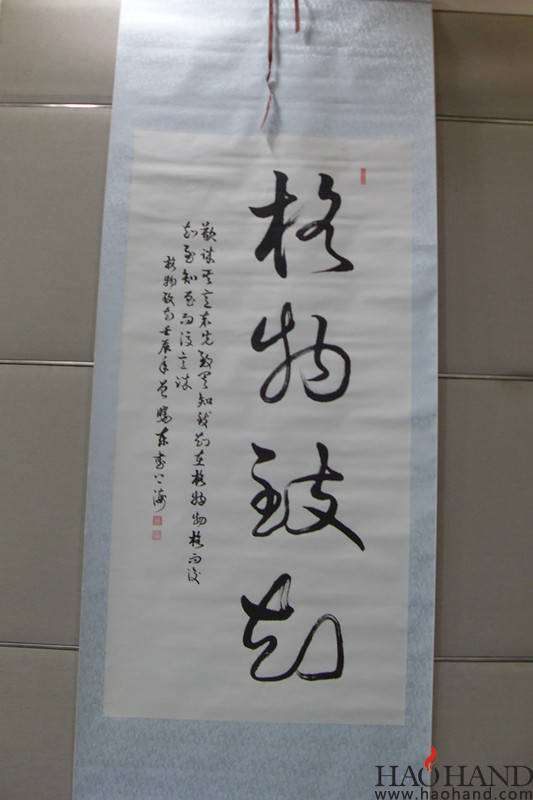 格物致知
欲诚其意者先致其知致知在格物物格而后
知至知至而后意诚
格物致知壬辰年鹏东书上海
HAOHAND
www.haohand.com